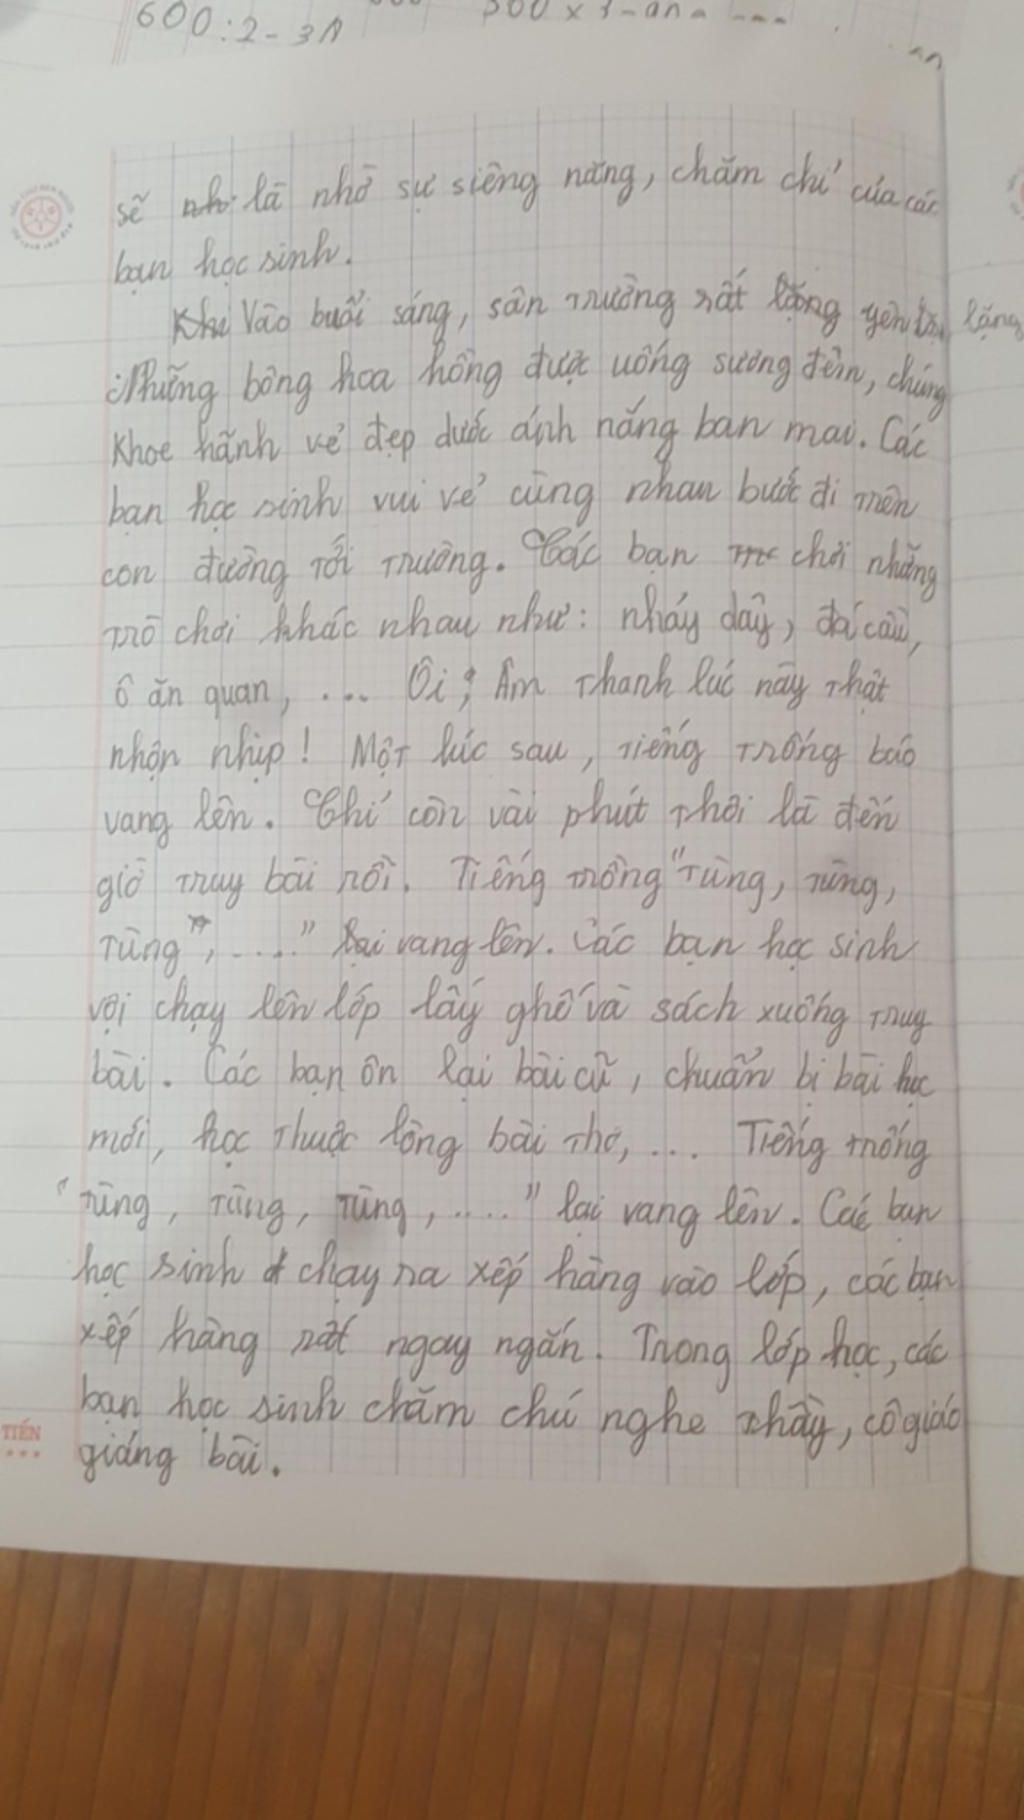 600:2-3
sẽ là nhờ sự siêng năng, chăm chỉ của các
bạn học sinh.
Khi Vào buổi sáng, sân trường rất lặng yên lặng
Những bông hoa hồng được uống sương đêm, chúng
khoe hãnh vẻ đẹp dưới ánh nắng ban mai. Các
bạn học sinh vui vẻ cùng nhau bước đi trên
con đường tới trường. Các bạn chơi những
trò chơi khác nhau như: nhảy dây, đá cầu,
ô ăn quan, .... Ôi; Âm thanh lúc này thật
nhộn nhịp! Một lúc sau, tiếng trống báo
vang lên. Chỉ còn vài phút thôi là đến
giờ truy bài rồi. Tiếng trống "Tùng, tùng,
Tùng, ....." lại vang lên. Các bạn học sinh
vội chạy lên lớp lấy ghế và sách xuống truy
bài. Các bạn ôn lại bài cũ, chuẩn bị bài học
mới, học thuộc lòng bài thơ, ... Tiếng trống
"Tùng, tùng, Tùng, ....." lại vang lên. Các bạn
học sinh chạy ra xếp hàng vào lớp, các bạn
xếp hàng rất ngay ngắn. Trong lớp học, các
bạn học sinh chăm chú nghe thầy, cô giáo
giảng bài.
TIẾN